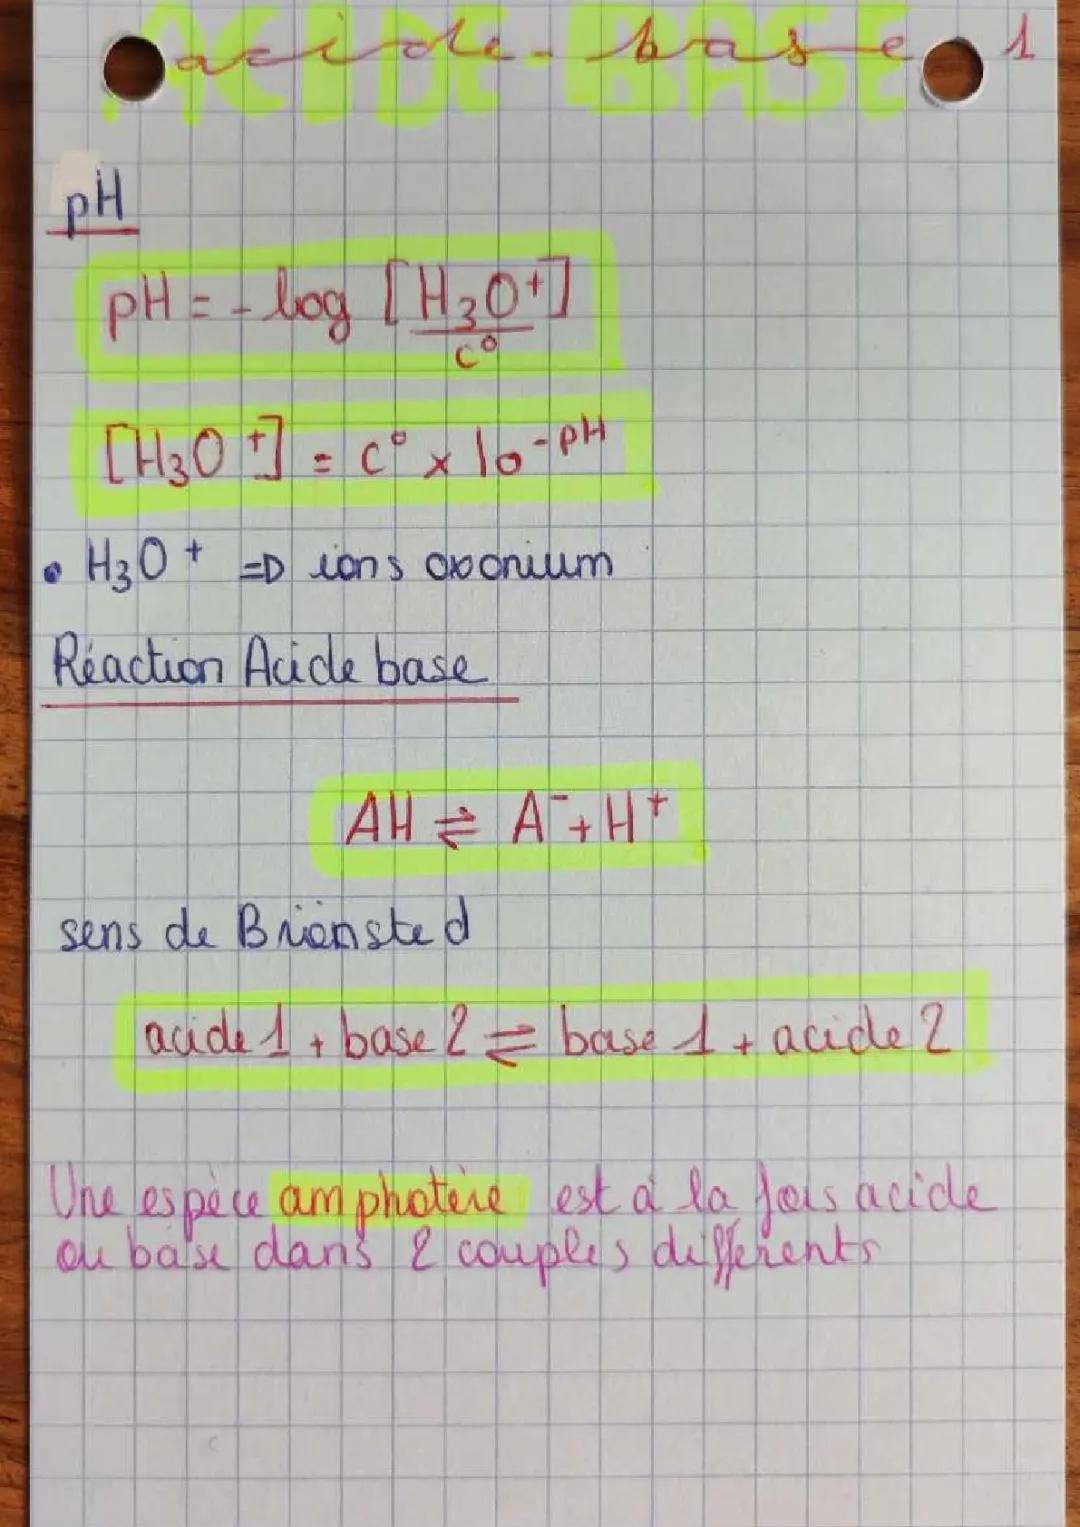 ACIDE-BASE
acide-base 1
pH
pH = - log [H₃O⁺]
c°
[H₃O⁺] = c° × 10⁻ᵖᴴ
• H₃O⁺ => ions oxonium
Réaction Acide base
AH ⇌ A⁻ + H⁺
sens de Briønsted
acide 1 + base 2 ⇌ base 1 + acide 2
Une espèce amphotère est à la fois acide
ou base dans 2 couples différents